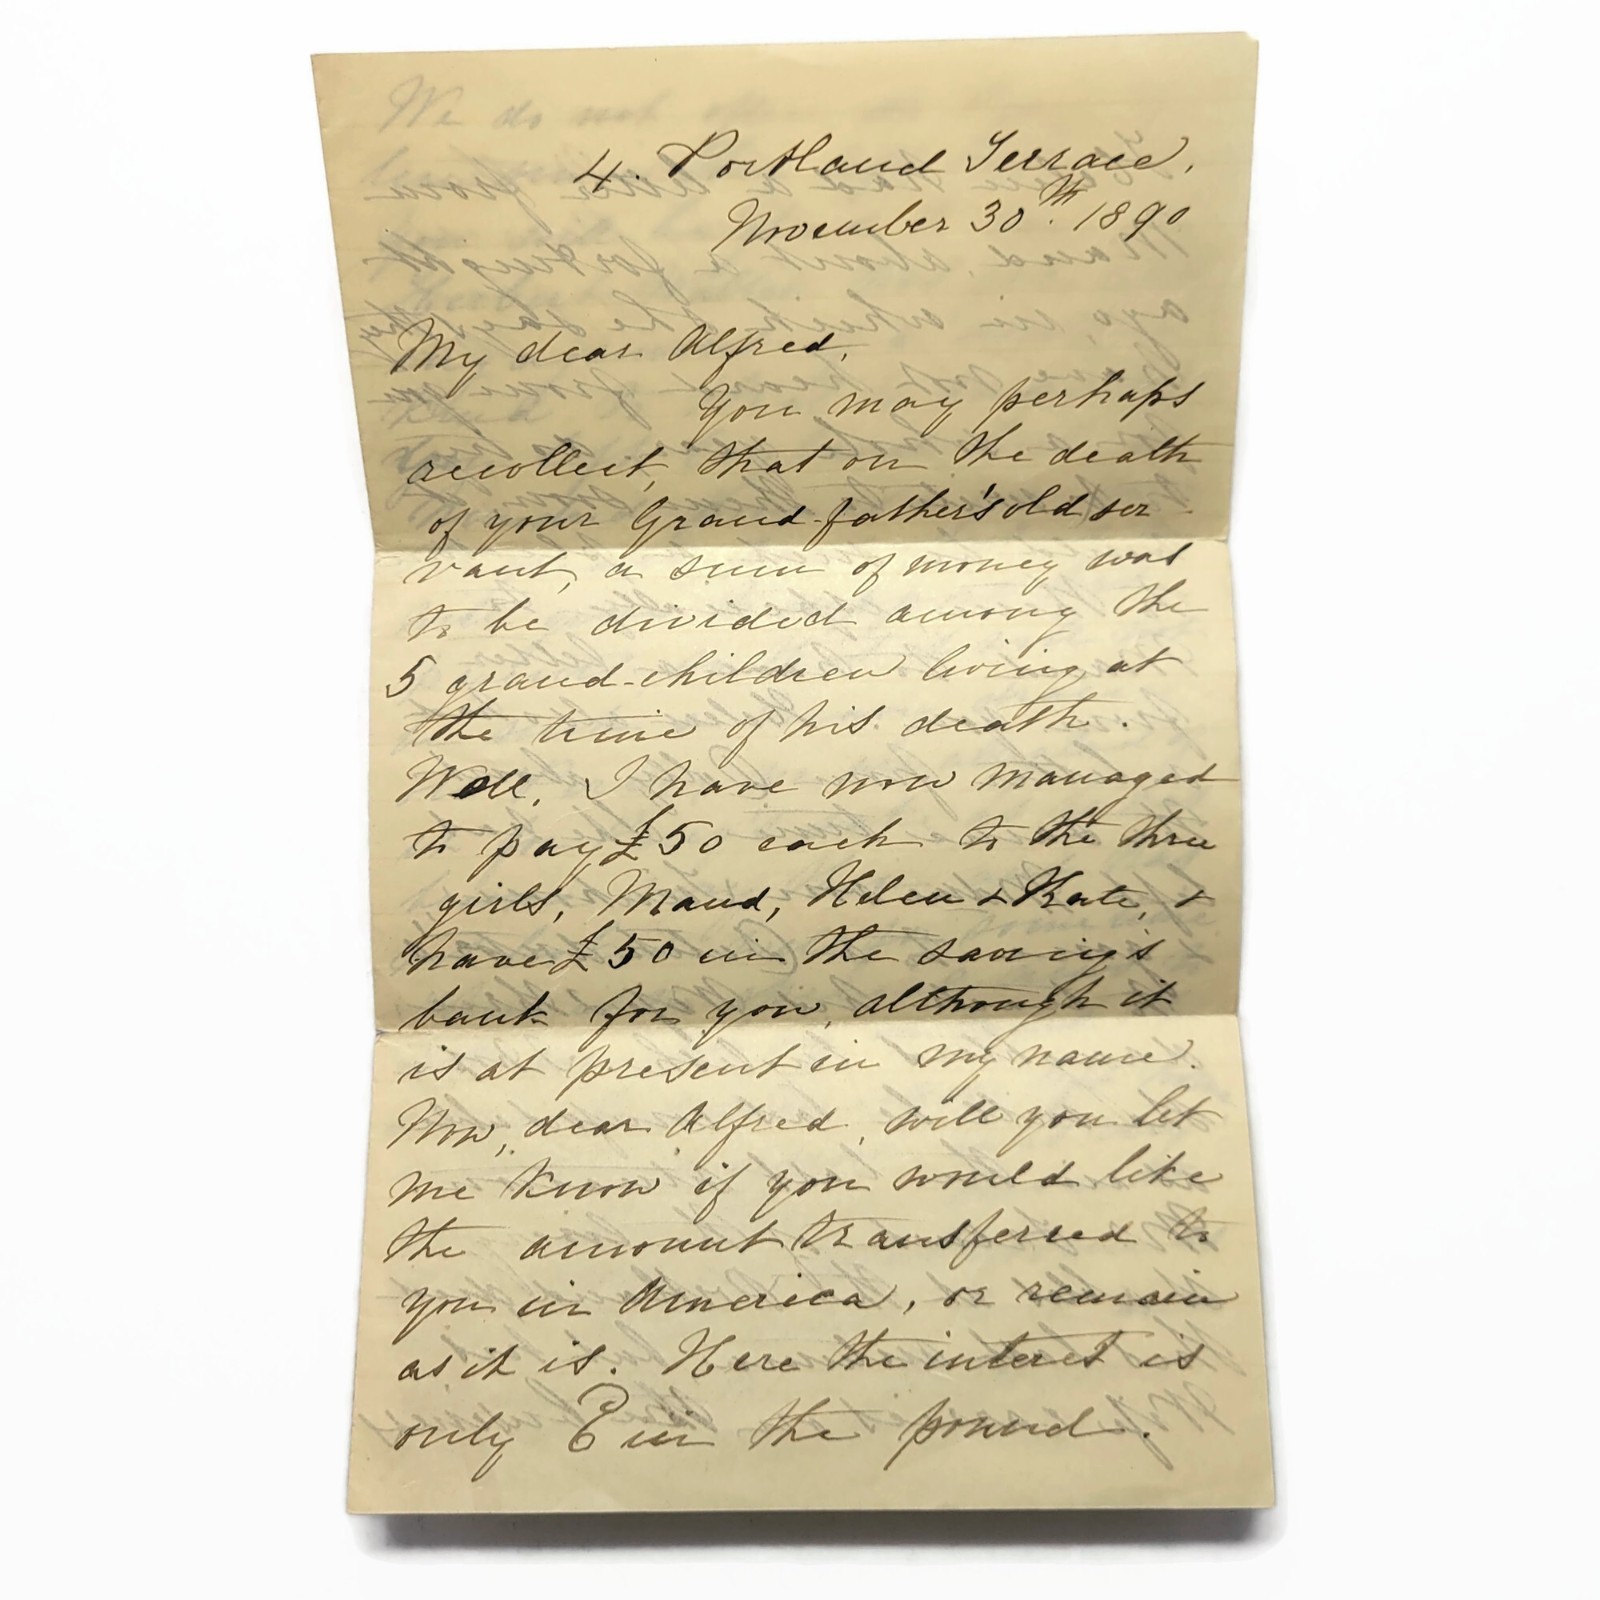 4. Portland Terrace,
November 30th. 1890
My dear Alfred,
You may perhaps
recollect, that on the death
of your Grand-father's old ser-
vant, a sum of money was
to be divided among the
5 grand-children living at
the time of his death.
Well, I have now managed
to pay £50 each to the three
girls, Maud, Helen & Kate, &
have £50 in the saving's
bank for you, although it
is at present in my name.
Now, dear Alfred, will you let
me know if you would like
the amount transferred to
you in America, or remain
as it is. Here the interest is
only in the pound.